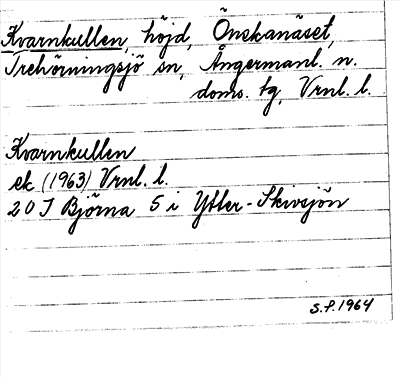 Kvarnkullen, höjd, Önskanäset,
Trehörningsjö sn, Ångermanl. n.
doms. tg, Vrnl. l.
Kvarnkullen
ek (1963) Vrnl. l.
20 J Björna 5 i Ytter-Skivsjön
S.F. 1964